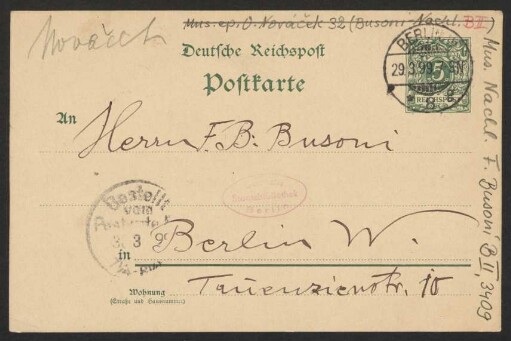 Mus. ep. O. Nováček 32 (Busoni-Nachl. B II)
Nováček
Deutsche Reichspost
Postkarte
BERLIN
29.3.99
REICHSPOST
5
An
Herrn F. B. Busoni
Bestellt
vom
Postamte
3
in Berlin W.
Tauenzienstr. 10
Wohnung
(Straße und Hausnummer)
Mus. Nachl. F. Busoni B II, 3409